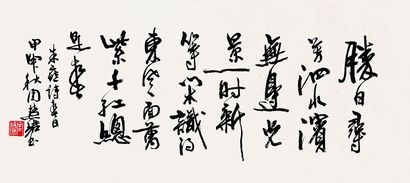 勝日尋
芳泗水濱
無邊光
景一时新
等閑識得
東風面萬
紫千紅總
是春
朱熹詩春日
甲申秋周慧珺书